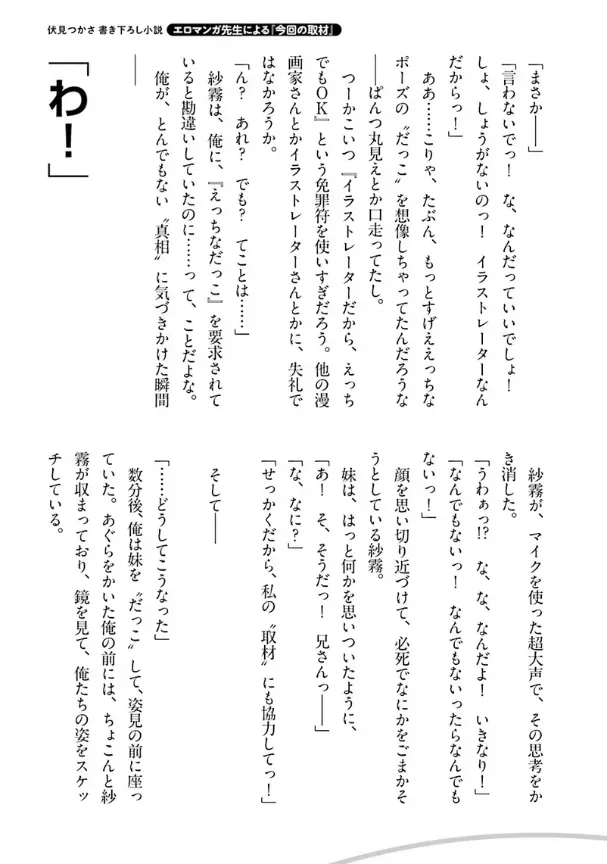 伏見つかさ 書き下ろし小説 エロマンガ先生による『今回の取材』
「まさか――」
「言わないでっ！　な、なんだっていいでしょ！
しょ、しょうがないのっ！　イラストレーターなん
だからっ！」
　ああ……こりゃ、たぶん、もっとすげええっちな
ポーズの〝だっこ〟を想像しちゃってたんだろうな
――ぱんつ丸見えとか口走ってたし。
　つーかこいつ『イラストレーターだから、えっち
でもＯＫ』という免罪符を使いすぎだろう。他の漫
画家さんとかイラストレーターさんとかに、失礼で
はなかろうか。
「ん？　あれ？　でも？　てことは……」
　紗霧は、俺に、『えっちなだっこ』を要求されて
いると勘違いしていたのに……って、ことだよな。
　俺が、とんでもない〝真相〟に気づきかけた瞬間
――
「わ！」
　紗霧が、マイクを使った超大声で、その思考をか
き消した。
「うわぁっ!?　な、な、なんだよ！　いきなり！」
「なんでもないっ！　なんでもないったらなんでも
ないっ！」
　顔を思い切り近づけて、必死でなにかをごまかそ
うとしている紗霧。
　妹は、はっと何かを思いついたように、
「あ！　そ、そうだっ！　兄さんっ――」
「な、なに？」
「せっかくだから、私の〝取材〟にも協力してっ！」
そして――
「……どうしてこうなった」
　数分後、俺は妹を〝だっこ〟して、姿見の前に座っ
ていた。あぐらをかいた俺の前には、ちょこんと紗
霧が収まっており、鏡を見て、俺たちの姿をスケッ
チしている。